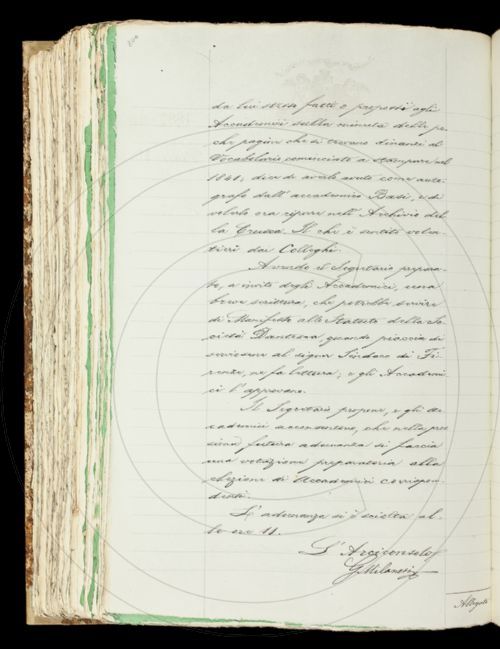 da lui stesso fatte e proposte agli
Accademici sulla minuta delle po-
che pagine che si trovano dinanzi al
Vocabolario cominciato a stampare nel
1841; dice di averle avute come auto-
grafo dall' accademico Basi, e di
volerle ora riporre nell' Archivio del-
la Crusca. Il che è sentito volen-
tieri dai Colleghi.
Avendo il Segretario prepara-
to, a invito degli Accademici, una
breve scrittura, che potrebbe servire
di Manifesto allo Statuto della So-
cietà Dantesca quando piaccia di
al signor Sindaco di Fi-
renze, ne fa lettura; e gli Accademi-
ci l' approvano.
Il Segretario propone, e gli Ac-
cademici acconsentono, che nella pros-
sima futura adunanza si faccia
una votazione preparatoria alla
elezione di Accademici corrispon-
denti.
L' adunanza si è sciolta al-
le ore 11.
L' Arciconsolo
G. Milanesi